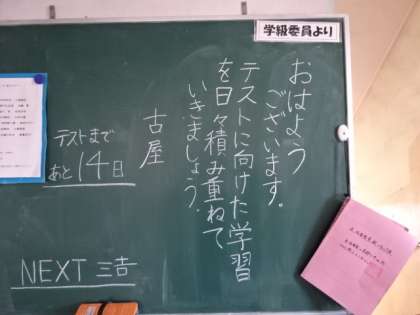 学級委員より
おはよう
ございます。
テストに向けた学習
を日々積み重ねて
いきましょう。
古屋
テストまで
あと14日
NEXT 三吉